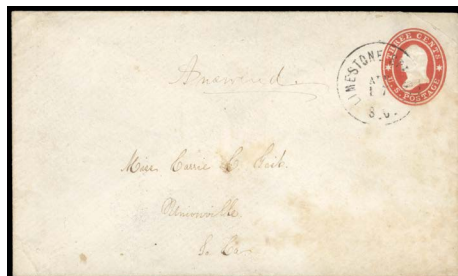 THREE CENTS
U.S. POSTAGE
LIMESTONE
S.C.
Answered
Miss Carrie
Unionville
So Ca